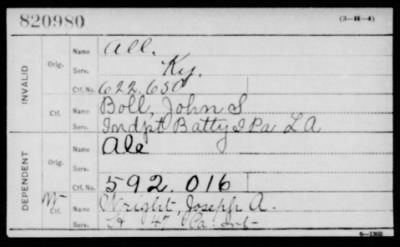 820980
(3—H—4)
INVALID
Orig.
Name All.
Serv. Ky.
Ctf.
Ctf. No. 622.650
Name Boll, John S
Serv. Indpt Batty I Pa L A
DEPENDENT
Orig.
Name Ale
Serv.
W Ctf.
Ctf. No. 592.016
Name Wright, Joseph A.
Serv. Pa Inf